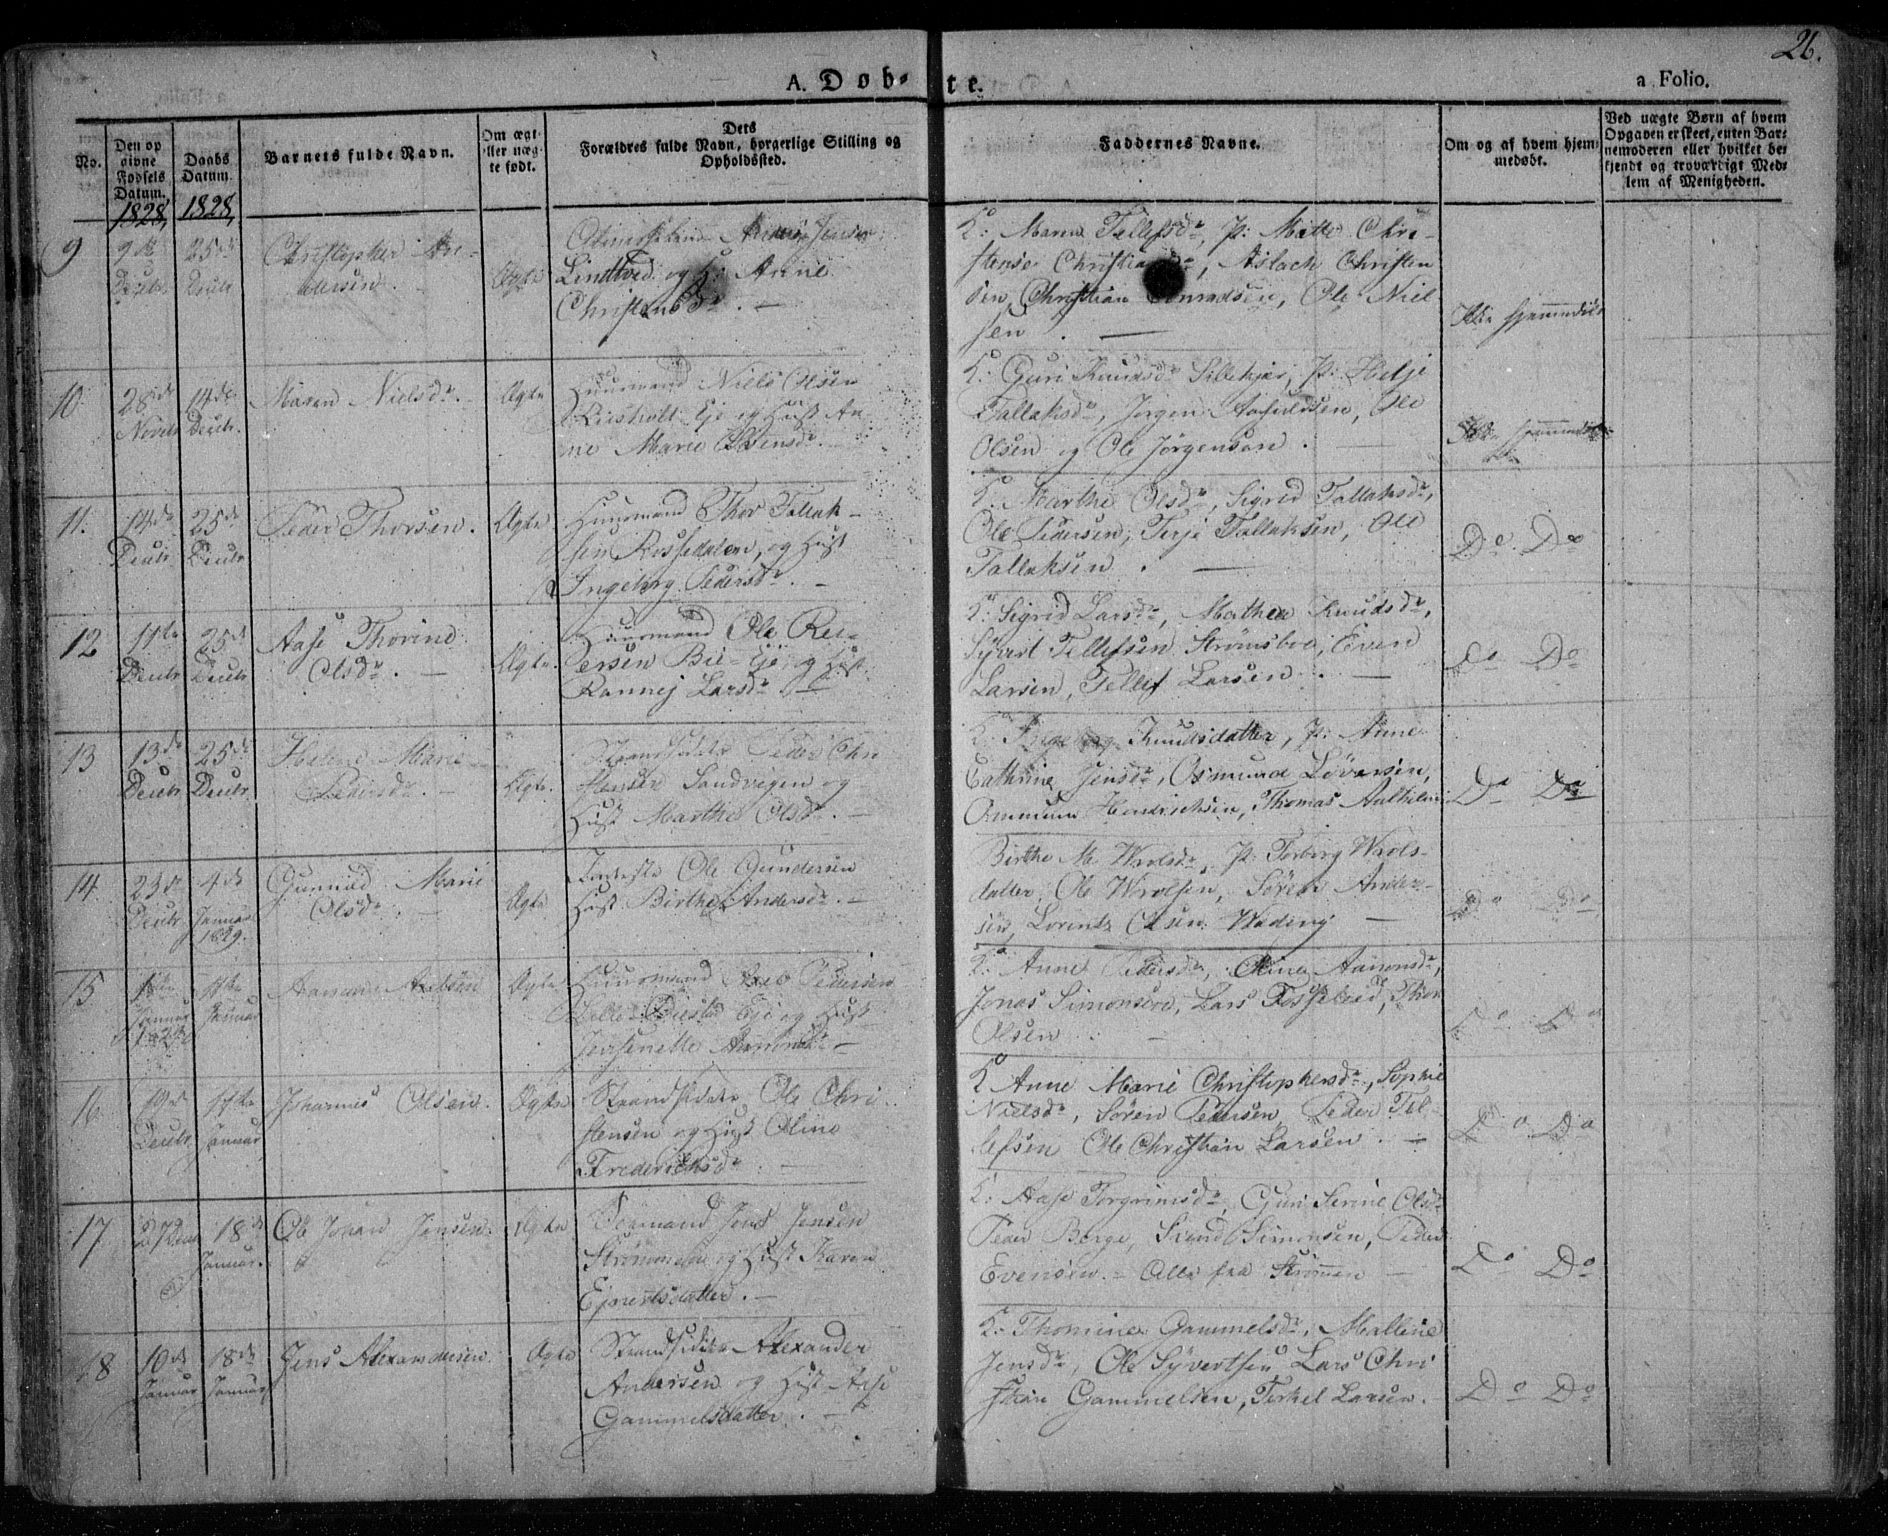 26.
A. Døb-
te.
a Folio.
No.
Den op
givne
Fødsels
Datum.
1828,
Daabs
Datum.
1828,
Barnets fulde Navn.
Om ægt-
eller uæg-
te født.
Dets
Forældres fulde Navn, borgerlige Stilling og
Opholdssted.
Faddernes Navne.
Om og af hvem hjem-
medøbt.
Ved uægte Børn af hvem
Opgaven er skeet, enten Bar-
nemoderen eller hvilket be-
kjendt og troværdigt Med-
lem af Menigheden.
9
9de
Decbr
25de
Decbr
Christopher An-
dersen.
Ægte
Anders Jensen
Lindtved og H: Anne
Christensdr. —
K: Maren Tellefsdr, P: Mette Chri-
stense Christiansdr, Aslach Christen
sen, Christian Conradsen, Ole Niel
sen. —
Ikke hjemmedøbt
10.
28de
Novbr
14de
Decbr.
Maren Nielsdr.
Ægte
Huusmand Niels Olsen
Eje og Hust An-
ne Marie Olsensdr.
K: Guri Knudsdr Sillekjær, P: Helje
Tallaksdr, Jørgen Olsen, Ole
Olsen og Ole Jørgensen.
Ikke hjemmedøbt
11.
14de
Decbr
25de
Decbr
Peder Thorsen.
Ægte
Huusmand Thor Tallak-
sen Rossedalen, og Hust
Ingeborg Pedersdr. —
K: Marthe Olsdr, Sigrid Tallaksdr,
Ole Pedersen, Terje Tallaksen, Ole
Tallaksen. —
Do Do
12
11te
Decbr
25de
Decbr
Aase Thorine
Olsdr. —
Ægte.
Huusmand Ole Rei-
ersen Bie-Eje, og Hust
Rannej Larsdr. —
K: Sigrid Larsdr, Mathea Knudsdr,
Syvert Tellefsen Strømsboe, Even
Larsen, Tellef Larsen. —
Do Do
13
13de
Decbr
25de
Decbr
Helene Marie
Pedersdr. —
Ægte.
Strandsidder Peder Chri
stensen Sandvigen og
Hust Marthe Olsdr. —
K: Ingeborg Knudsdatter, P: Anne
Cathrine Jensdr, Osmund Sørensen,
Hendrichsen, Thomas
Do Do
14.
23de
Decbr
4de
Januar
1829.
Gunnild Marie
Olsdr. —
Ægte
Ole Gundersen
Hust Birthe Andersdr. —
Birthe M Wrolsdr, P: Torborg Wrols-
datter, Ole Wrolsen, Søren Ander-
sen, Lorentz Olsen —
Do Do
15
1ste
Januar
1829
11te
Januar
Ægte
Huusmand Pedersen
Eje og Hust
Jensenette
K: Anne Pedersdr, Oline Aanonsdr,
Jonas Simonsen, Lars Thor
Olsen. —
Do Do
16.
19de
Decbr
11te
Januar
Johannes Olsen.
Ægte
Strandsidder Ole Chri
stensen og Hust Oline
Fredrichsdr. —
K Anne Marie Christophersdr, Sophie
Nielsdr, Søren Pedersen, Peder Tel-
lefsen Ole Christian Larsen. —
Do Do
17
27 Decbr
18de
Januar.
Ole Johan Jensen.
Ægte
Søemand Jens Jensen
Strømmen og Hust Karen
Ejvertsdatter. —
K: Aase Torgrimsdr, Guri Serine Olsdr
Peder Berge, Simonsen, Peder
Evensen. — Alle fra Strømmen —
Do Do
18
10de
Januar
18de
Januar
Jens Alexandersen.
Ægte
Strandsidder Alexander
Andersen og Hust Aase
Gammelsdatter. —
K: Thomine Gammelsdr, Malline
Jensdr, Ole Syvertsen Lars Chri
stian Gammelsen, Terkel Larsen.
Do Do